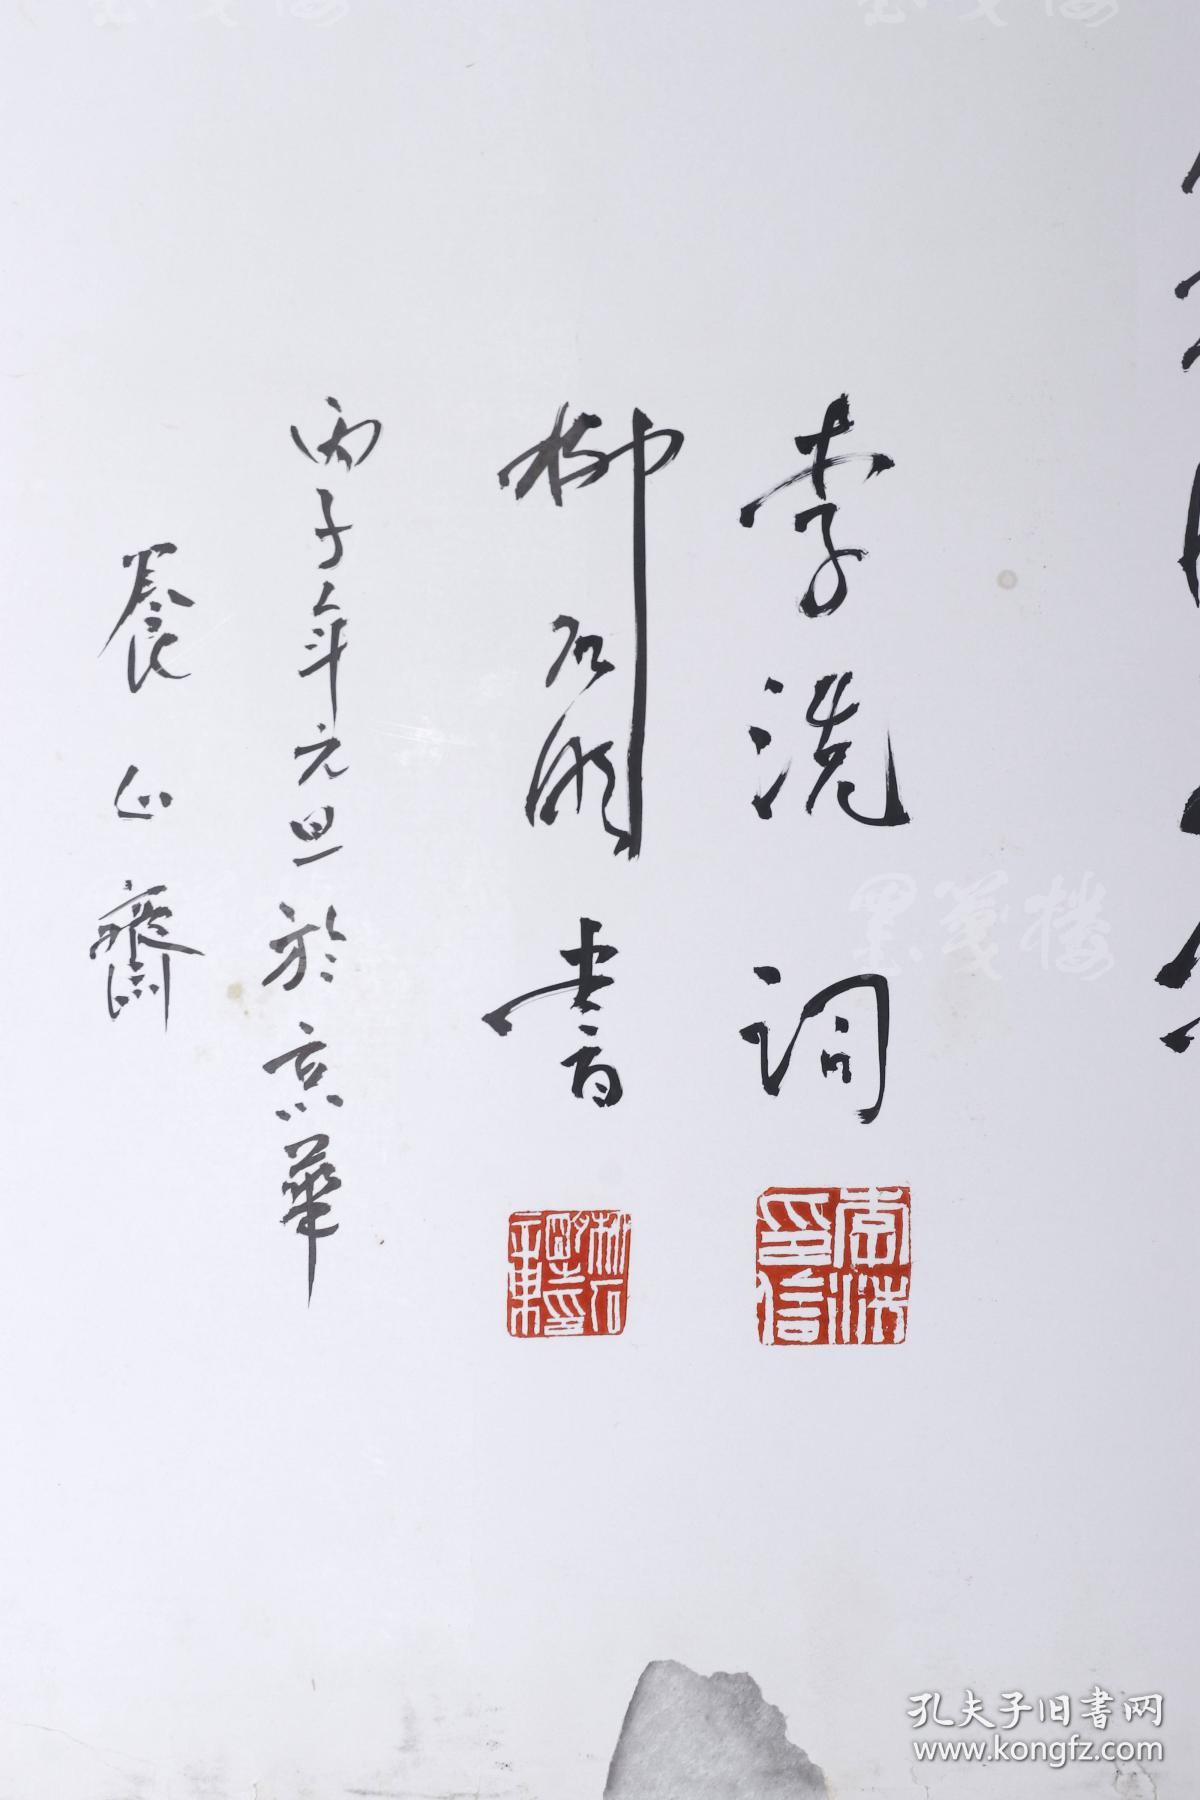 李洗词
柳石明书
丙子年元旦於京華
養心齋
孔夫子旧书网
www.kongfz.com
墨笺楼